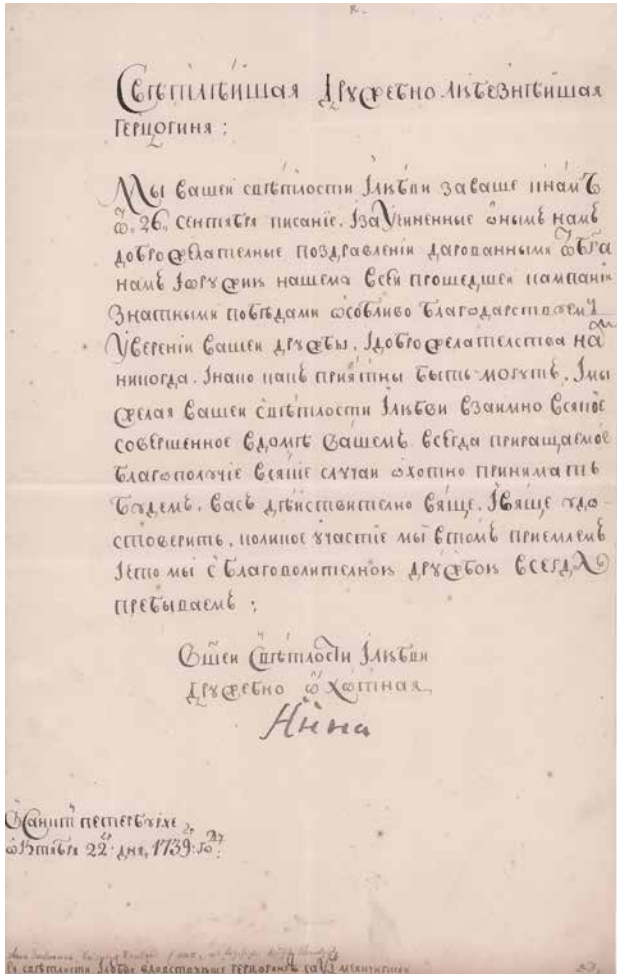 Свѣтлѣйшая Дружебно любезнѣйшая
Герцогиня :
Мы вашей свѣтлости Iлюбви за ваше кнамъ
ѿ. 26. сентября писанiе. Iза учиненные онымъ намъ
доброжелателные поздравленiи дарованными ѿ бга
намъ Iоружию нашему всей прошедшей кампанiи
знатными победами особливо благодарствуем
уверенiи вашей дружбы. Iдоброжелателства нам
никогда. Iнако какъ прiятны быть могутъ. Iмы
желая вашей свѣтлости Iлюбви взаимно всякое
совершенное вдомѣ вашемъ всегда приращаемое
благополучiе всякiе случаи охотно принимать
будемъ. васъ дѣйствително вяще. Iвяще удо-
стоверить. коликое участiе мы втомъ прiемлемъ
Iчто мы с благоволителною дружбою всегда
пребываемъ ;
Вшей Свѣтлости Iлюбви
дружебно охотная
Анна
В Санктъ петербурхе
октября 22 дня, 1739: году
Ея свѣтлости Iлюбве герцогине